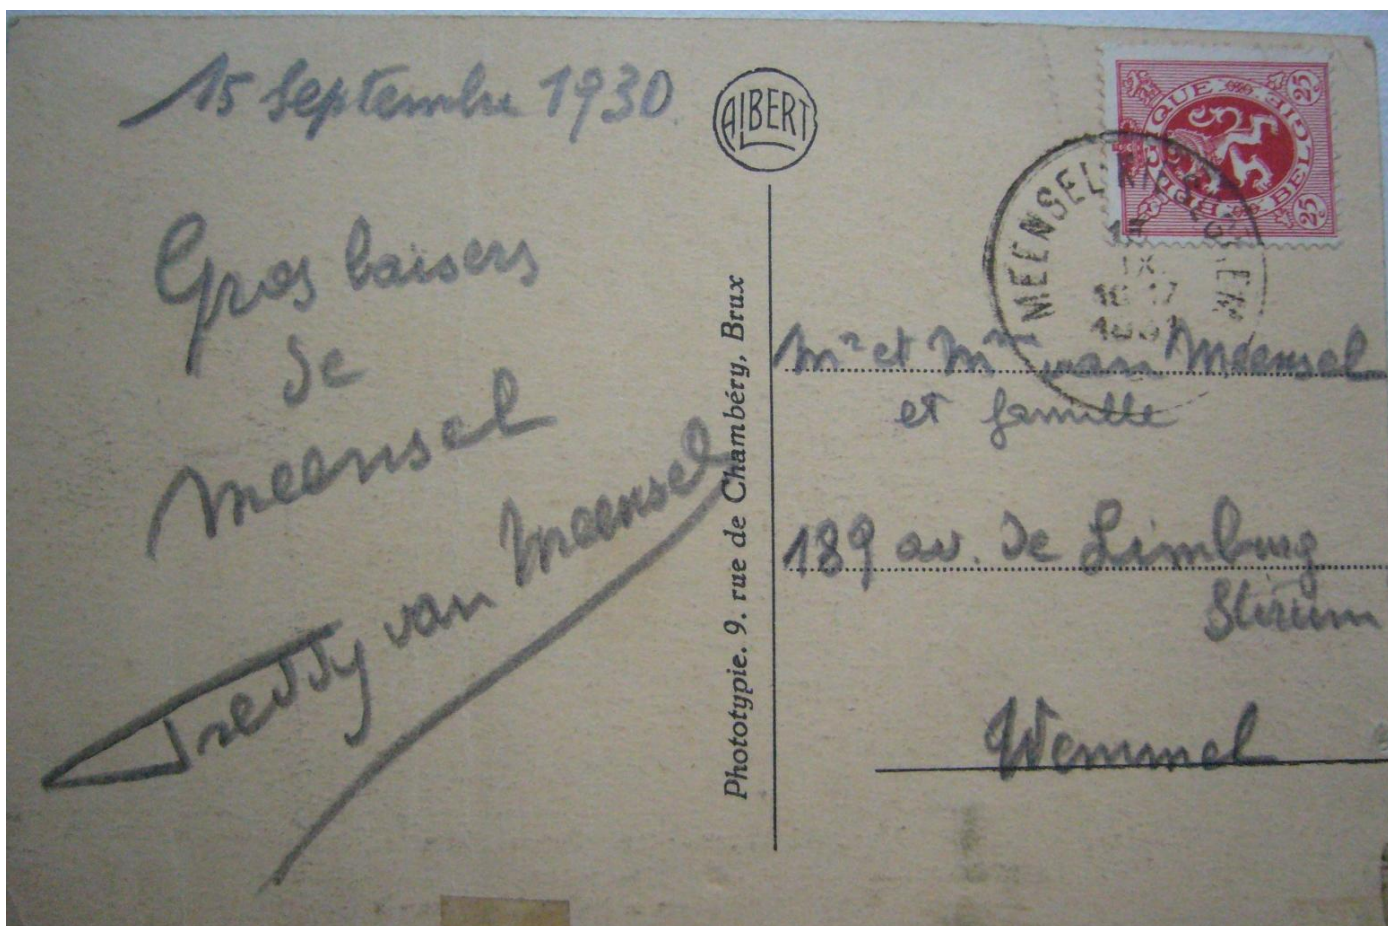 15 Septembre 1930.
Gros baisers
de
Meensel
Freddy van Meensel
ALBERT
Phototypie. 9. rue de Chambéry, Brux
BELGIQUE BELGIË
25c
25c
MEENSEL-KIEZEGEM
IX
Mr et Mme van Meensel
et famille
189 av. de Limburg
Stirum
Wemmel